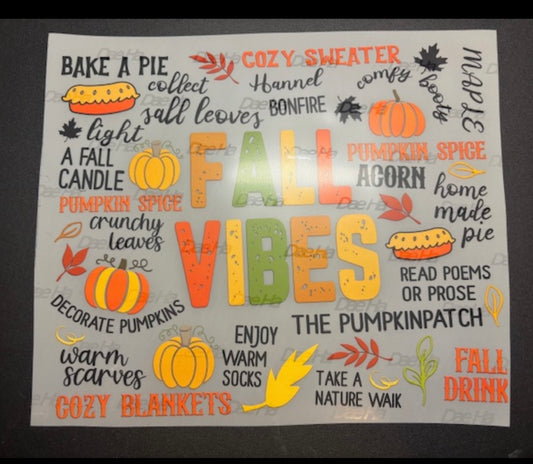 BAKE A PIE
COZY SWEATER
collect
sall leaves
Hannel
BONFIRE
comfy
boots
MAPLE
light
A FALL
CANDLE
FALL
VIBES
PUMPKIN SPICE
ACORN
home
made
pie
PUMPKIN SPICE
crunchy
leaves
READ POEMS
OR PROSE
DECORATE PUMPKINS
THE PUMPKINPATCH
warm
scarves
ENJOY
WARM
SOCKS
TAKE A
NATURE WAIK
FALL
DRINK
COZY BLANKETS
DaeHa